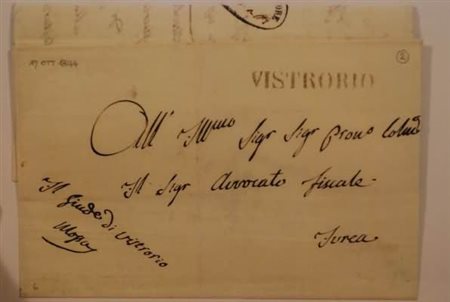 19 OTT 1844
2
VISTRORIO
All' Illmo Sigr Sigr Prone Colmo
Il Sigr Avvocato Fiscale
Ivrea
Il Giude di Vistrorio